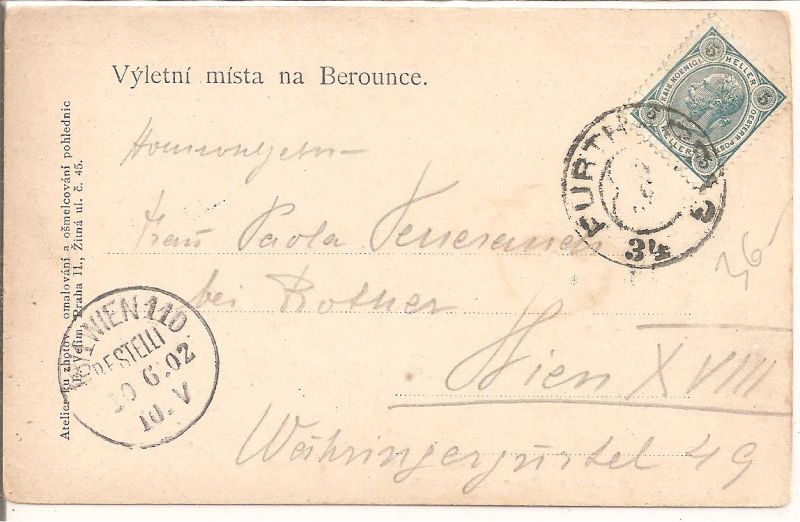 Výletní místa na Berounce.
Frau Paola
bei Rotter
Wien XVIII
Währingergürtel 49
36
Atelier ku zhotov., omalování a ošmelcování pohlednic
Velím, Praha II., Žitná ul. č. 45.
5 HELLER 5
KAIS KOENIGL
OESTERR POST
HELLER
FURTH
34
WIEN 110
BESTELLT
6.02
10.V